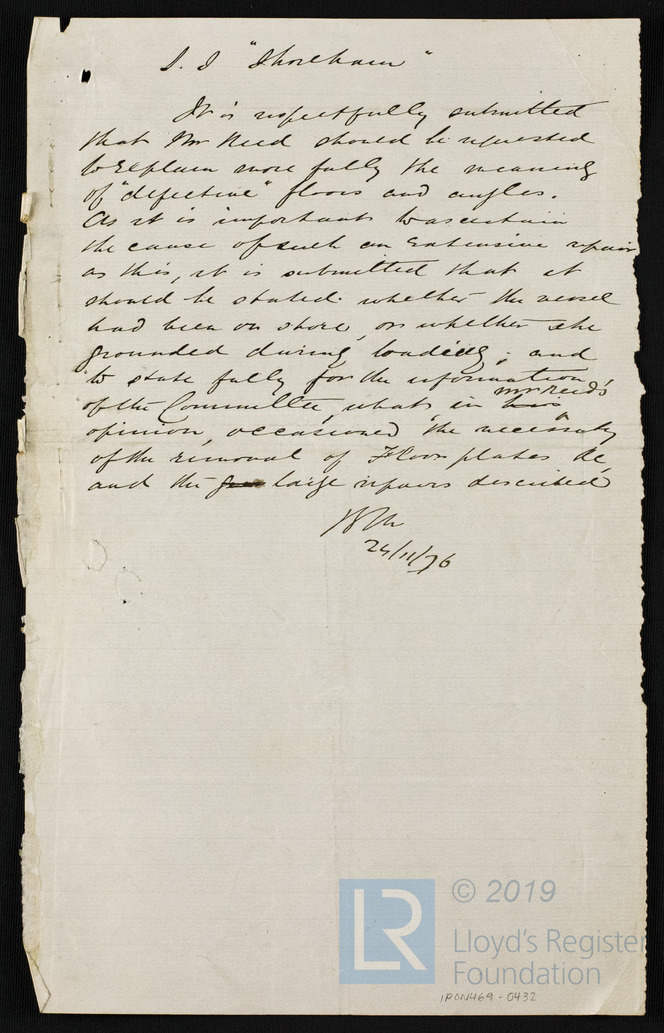 S. S "Shoreham"
It is respectfully submitted
that Mr Reed should be requested
to explain more fully the meaning
of "defective" floors and angles.
As it is important to ascertain
the cause of such an extensive repair
as this, it is submitted that it
should be stated whether the vessel
had been on shore, or whether she
grounded during loading; and
to state fully for the information,
of the Committee, what, in his Mr Reed's
opinion, occasioned "the necessity
of the removal of Floor plates &c,
and the large repairs described
24/11/76
LR © 2019
Lloyd's Register
Foundation
IRON469-0432